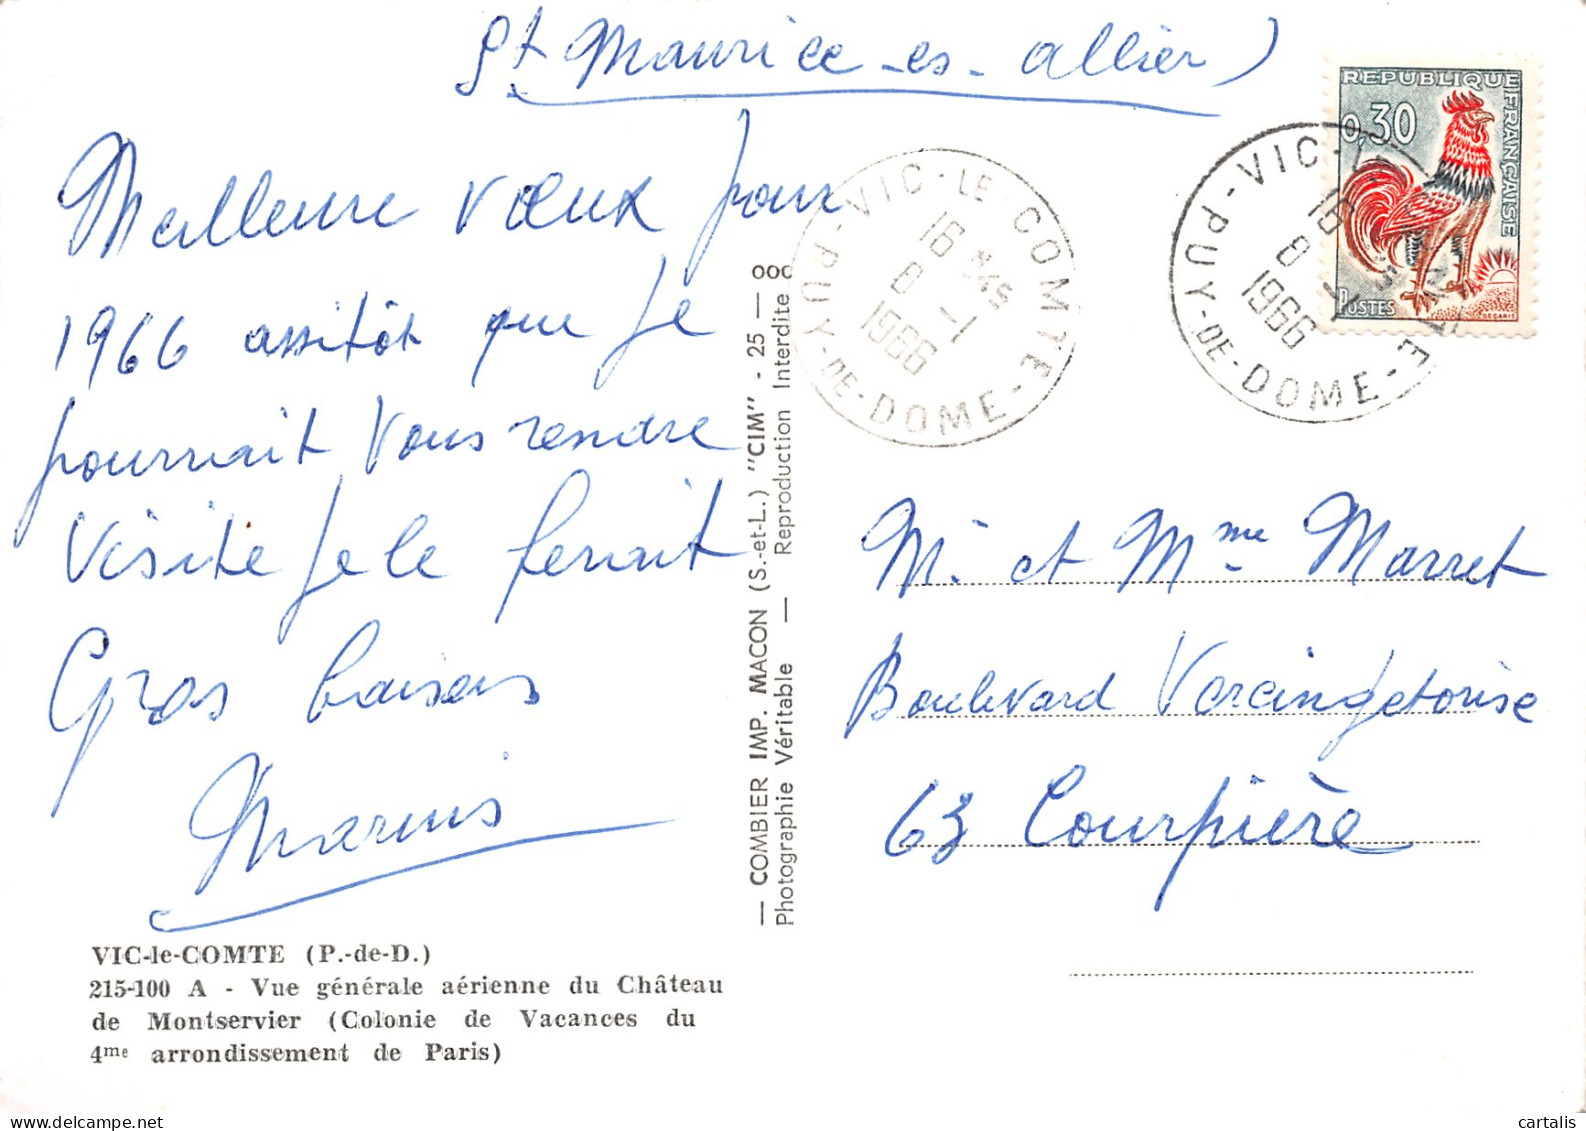 St Maurice-es-allier)
Meilleure vœux pour
1966 assitôt que je
pourrait Vous rendre
Visite je le ferait
Gros baisers
VIC-le-COMTE (P.-de-D.)
215-100 A - Vue générale aérienne du Château
de Montservier (Colonie de Vacances du
4me arrondissement de Paris)
— COMBIER IMP. MACON (S.-et-L.) "CIM" - 25 —
Photographie Véritable — Reproduction Interdite
VIC-LE-COMTE
16 H45
8 -1
1966
PUY-DE-DOME
REPUBLIQUE FRANÇAISE
0,30
POSTES
DECARIS
VIC-
16
8 -1
1966
PUY-DE-DOME
M. et Mme Marret
Boulevard Vercingetorise
63 Courpière
cartalis
delcampe.net